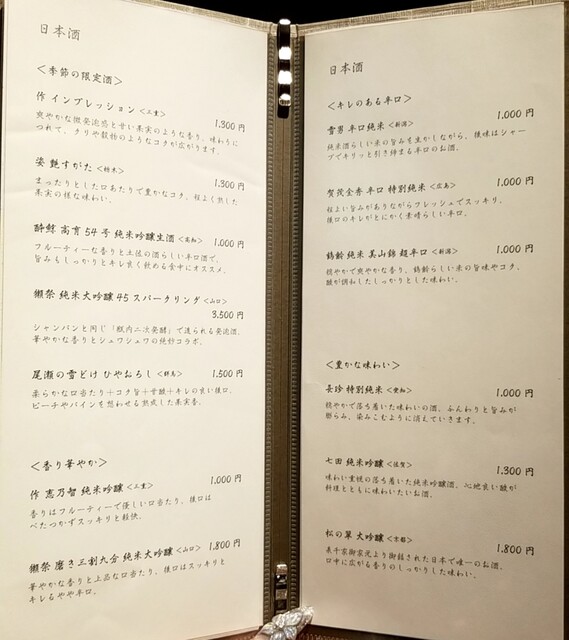 日本酒
＜季節の限定酒＞
作 インプレッション ＜三重＞
1.300 円
爽やかな微発泡感と甘い果実のような香り。味わうに
つれて、クリや穀物のようなコクが広がります。
姿 艶すがた ＜栃木＞
1.300 円
まったりとした口あたりで豊かなコク。程よく熟した
果実の様な味わい。
酔鯨 高育 54 号 純米吟醸生酒 ＜高知＞
1.000 円
フルーティーな香りと土佐の酒らしい辛口酒で、
旨みもしっかりとキレ良く飲める食中にオススメ。
獺祭 純米大吟醸 45 スパークリング ＜山口＞
3.500 円
シャンパンと同じ「瓶内二次発酵」で造られる発泡酒。
華やかな香りとシュワシュワの絶妙コラボ。
尾瀬の雪どけ ひやおろし ＜群馬＞
1.500 円
柔らかな口当たり＋コク旨＋甘酸＋キレの良い後口。
ピーチやパインを想わせる熟成した果実香。
＜香り華やか＞
作 恵乃智 純米吟醸 ＜三重＞
1.000 円
香りはフルーティーで優しい口当たり、後口は
べたつかずスッキリと軽快。
獺祭 磨き三割九分 純米大吟醸 ＜山口＞
1.800 円
華やかな香りと上品な口当たり、後口はスッキリと
キレるやや辛口。
日本酒
＜キレのある辛口＞
雪男 辛口純米 ＜新潟＞
1.000 円
純米酒らしい米の旨みを生かしながら、後味はシャー
プでキリッと引き締まる辛口のお酒。
賀茂金秀 辛口 特別純米 ＜広島＞
1.000 円
程よい旨みがありながらフレッシュでスッキリ。
後口のキレがとにかく素晴らしい辛口。
鶴齢 純米 美山錦 超辛口 ＜新潟＞
1.000 円
穏やかで爽やかな香り、鶴齢らしい米の旨味やコク、
酸が調和したしっかりとした味わい。
＜豊かな味わい＞
長珍 特別純米 ＜愛知＞
1.000 円
穏やかで落ち着いた味わいの酒。ふんわりと旨みが
膨らみ、染みこむように消えていきます。
七田 純米吟醸 ＜佐賀＞
1.300 円
味わい重視の落ち着いた純米吟醸酒。心地良い酸が
料理とともに味わいたいお酒。
松の翠 大吟醸 ＜京都＞
1.800 円
表千家御家元より御銘された日本で唯一のお酒。
口中に広がる香りのしっかりした味わい。